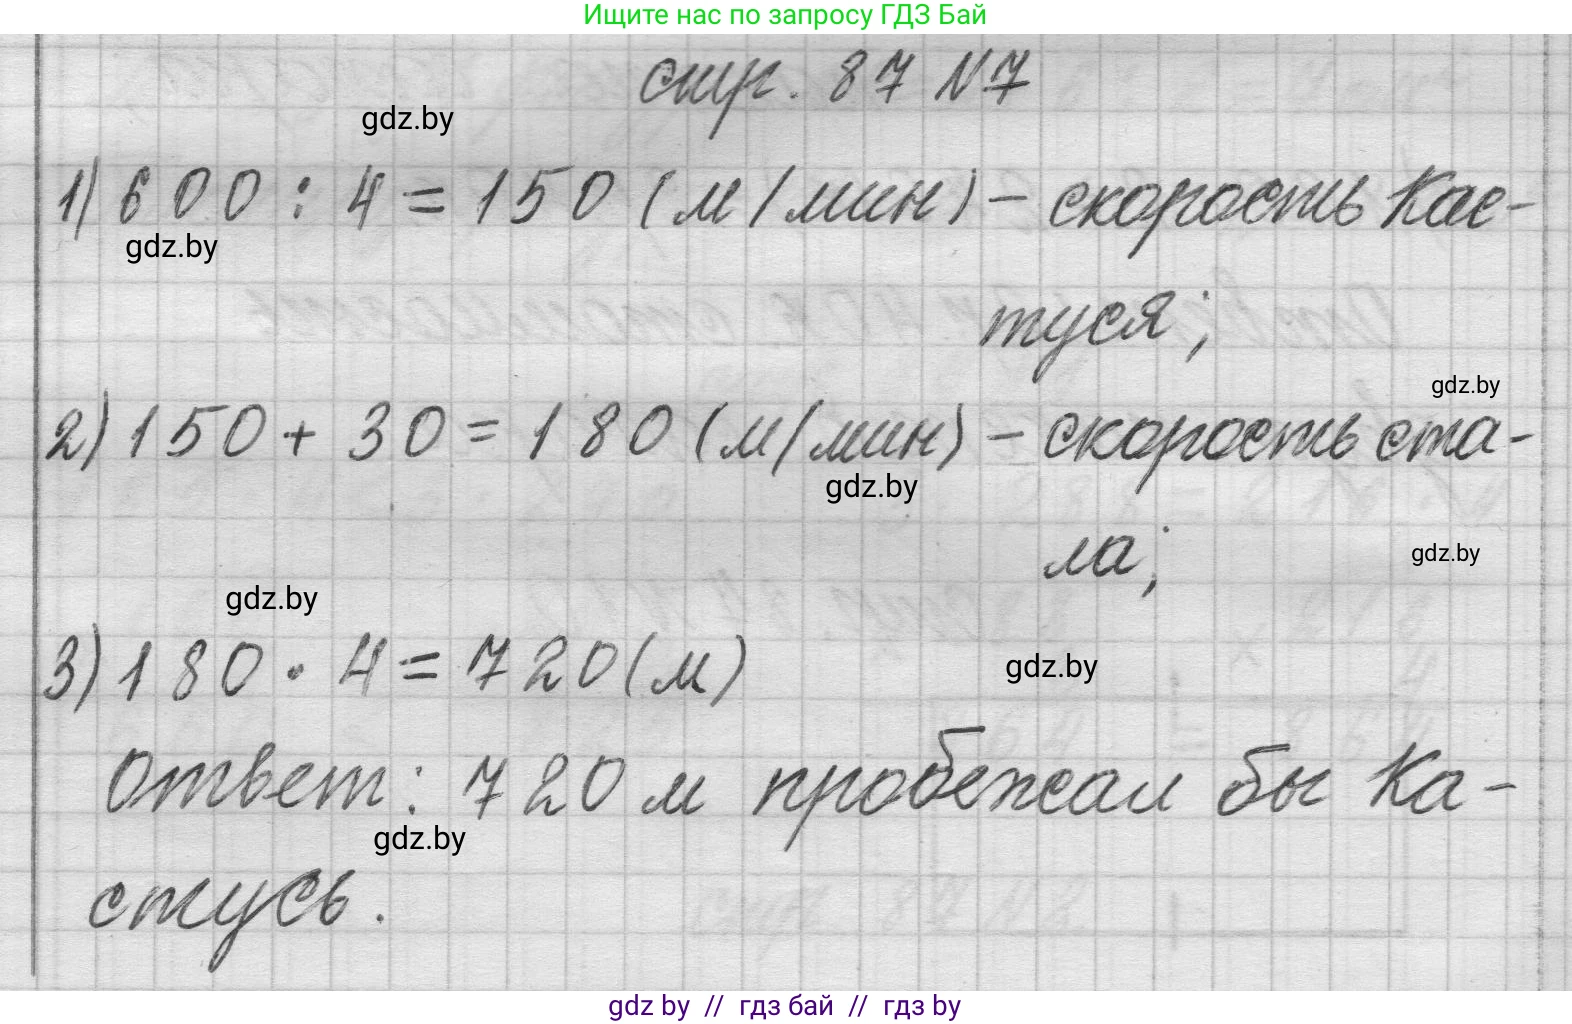 Ищите нас по запросу ГДЗ Бай
стр. 87 №7
gdz.by
1) 600 : 4 = 150 (м/мин) – скорость Кас-
gdz.by
туся;
gdz.by
2) 150 + 30 = 180 (м/мин) – скорость ста-
gdz.by
ла;
gdz.by
gdz.by
3) 180 · 4 = 720 (м)
gdz.by
Ответ: 720 м пробежал бы Ка-
gdz.by
стусь.
gdz by // гдз бай // гдз by